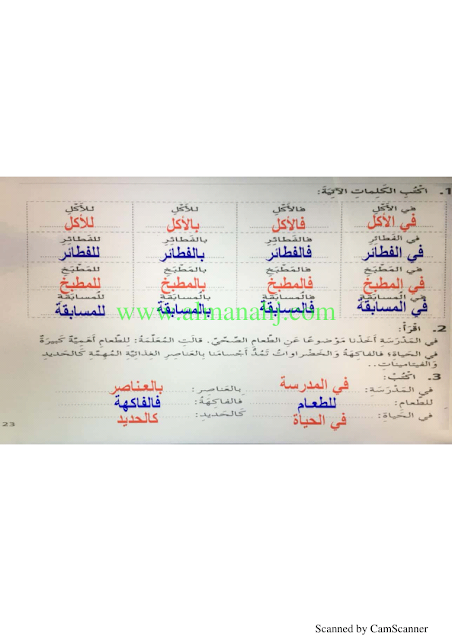 1. اكْتُبِ الكَلِماتِ الآتِيَةَ:
في الأَكْلِ فالأَكْلِ للأَكْلِ للأَكْلِ
في الأكل فالأكل بالأكل للأكل
في الفَطائِرِ فالفَطائِرِ بالفَطائِرِ للفَطائِرِ
في الفطائر فالفطائر بالفطائر للفطائر
في المَطْبَخِ فالمَطْبَخِ بالمَطْبَخِ للمَطْبَخِ
في المطبخ فالمطبخ بالمطبخ للمطبخ
في المُسابَقَةِ فالمُسابَقَةِ بالمُسابَقَةِ للمُسابَقَةِ
في المسابقة فالمسابقة بالمسابقة للمسابقة
www.almanahj.com
2. اقْرَأْ:
في المَدْرَسَةِ أَخَذْنا مَوْضوعًا عَنِ الطَّعامِ الصِّحِّيِّ. قالَتِ المُعَلِّمَةُ: للطَّعامِ أَهَمِّيَّةٌ كَبيرَةٌ
في الحَياةِ؛ فالفاكِهَةُ والخَضْراواتُ تَمُدُّ أَجْسامَنا بالعَناصِرِ الغِذائِيَّةِ المُهِمَّةِ كالحَديدِ
والفيتاميناتِ..
3. اكْتُبْ:
في المَدْرَسَةِ: في المدرسة بالعَناصِرِ: بالعناصر
للطَّعامِ: للطعام فالفاكِهَةُ: فالفاكهة
في الحَياةِ: في الحياة كالحَديدِ: كالحديد
23
Scanned by CamScanner